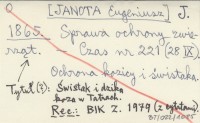 [JANOTA Eugeniusz] J.
1865. Sprawa ochrony zwie-
rząt. – Czas nr 221 (28 IX).
Ochrona kozicy i świstaka.
Tytuł (?): Świstak i dzika
koza w Tatrach.
Rec.: BIK Z. 1979 (z cytatami).